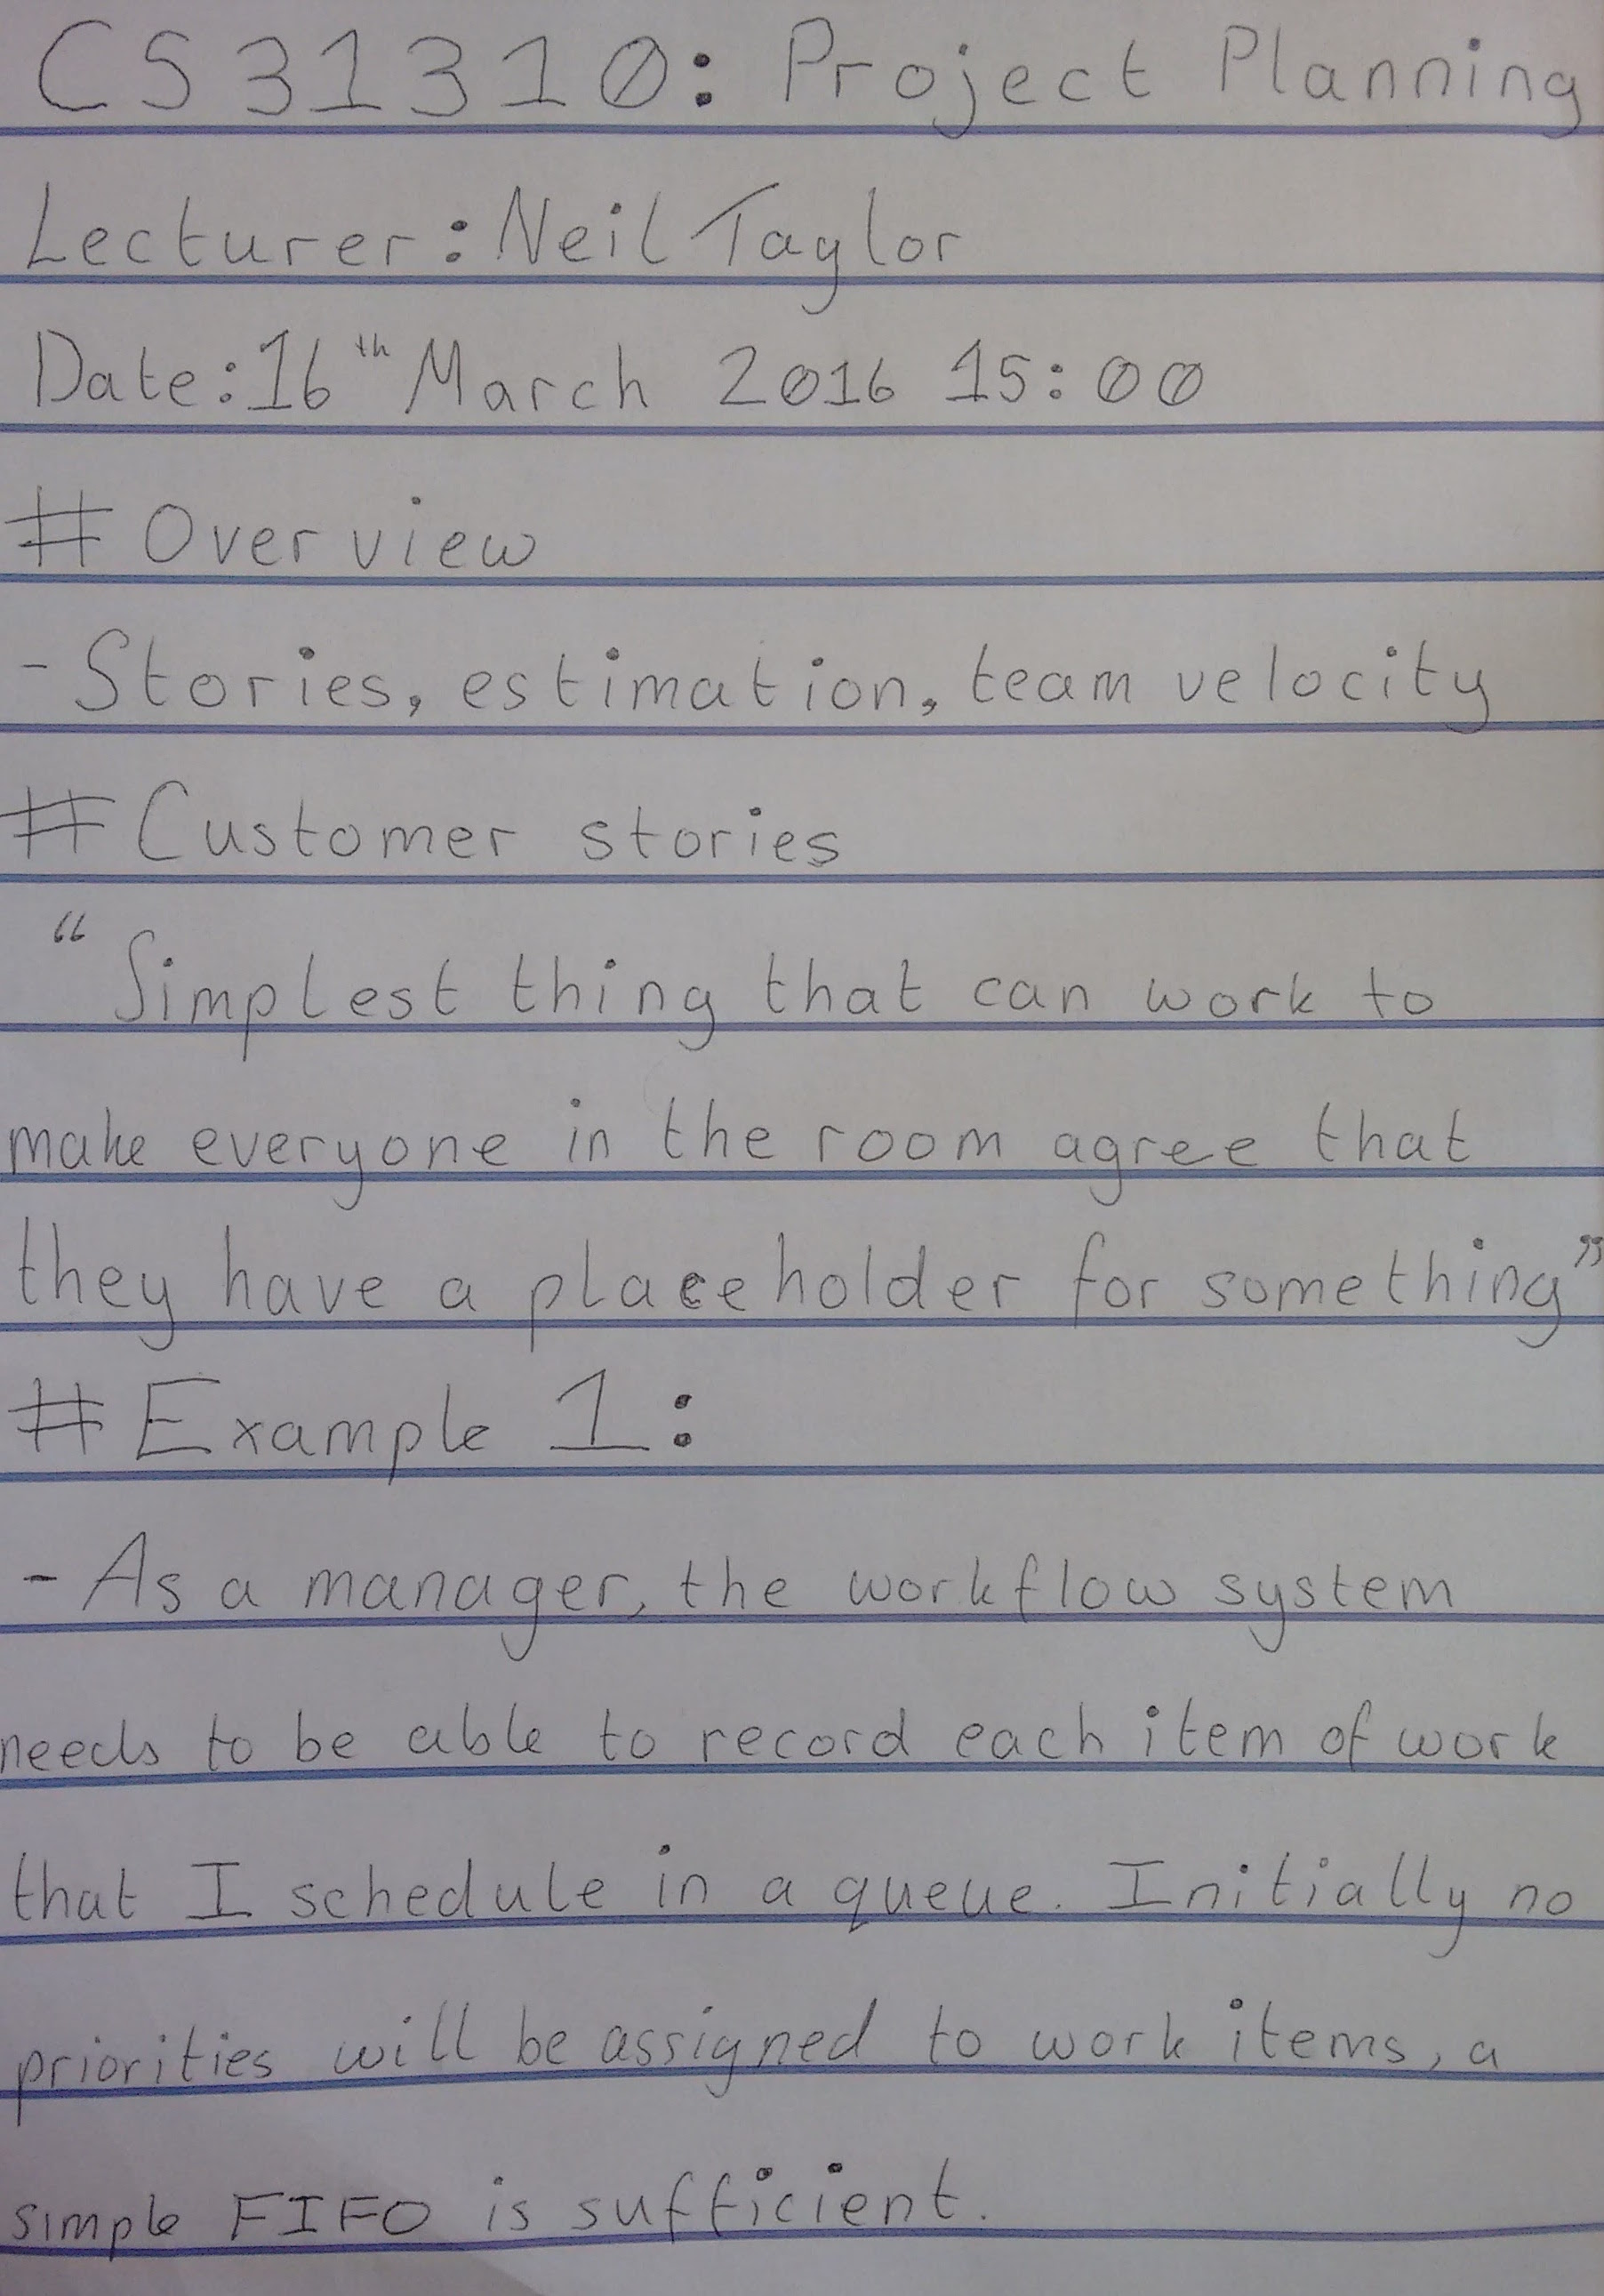 CS31310: Project Planning
Lecturer: Neil Taylor
Date: 16th March 2016 15:00
# Overview
- Stories, estimation, team velocity
# Customer stories
“Simplest thing that can work to
make everyone in the room agree that
they have a placeholder for something”
# Example 1:
- As a manager, the workflow system
needs to be able to record each item of work
that I schedule in a queue. Initially no
priorities will be assigned to work items, a
simple FIFO is sufficient.